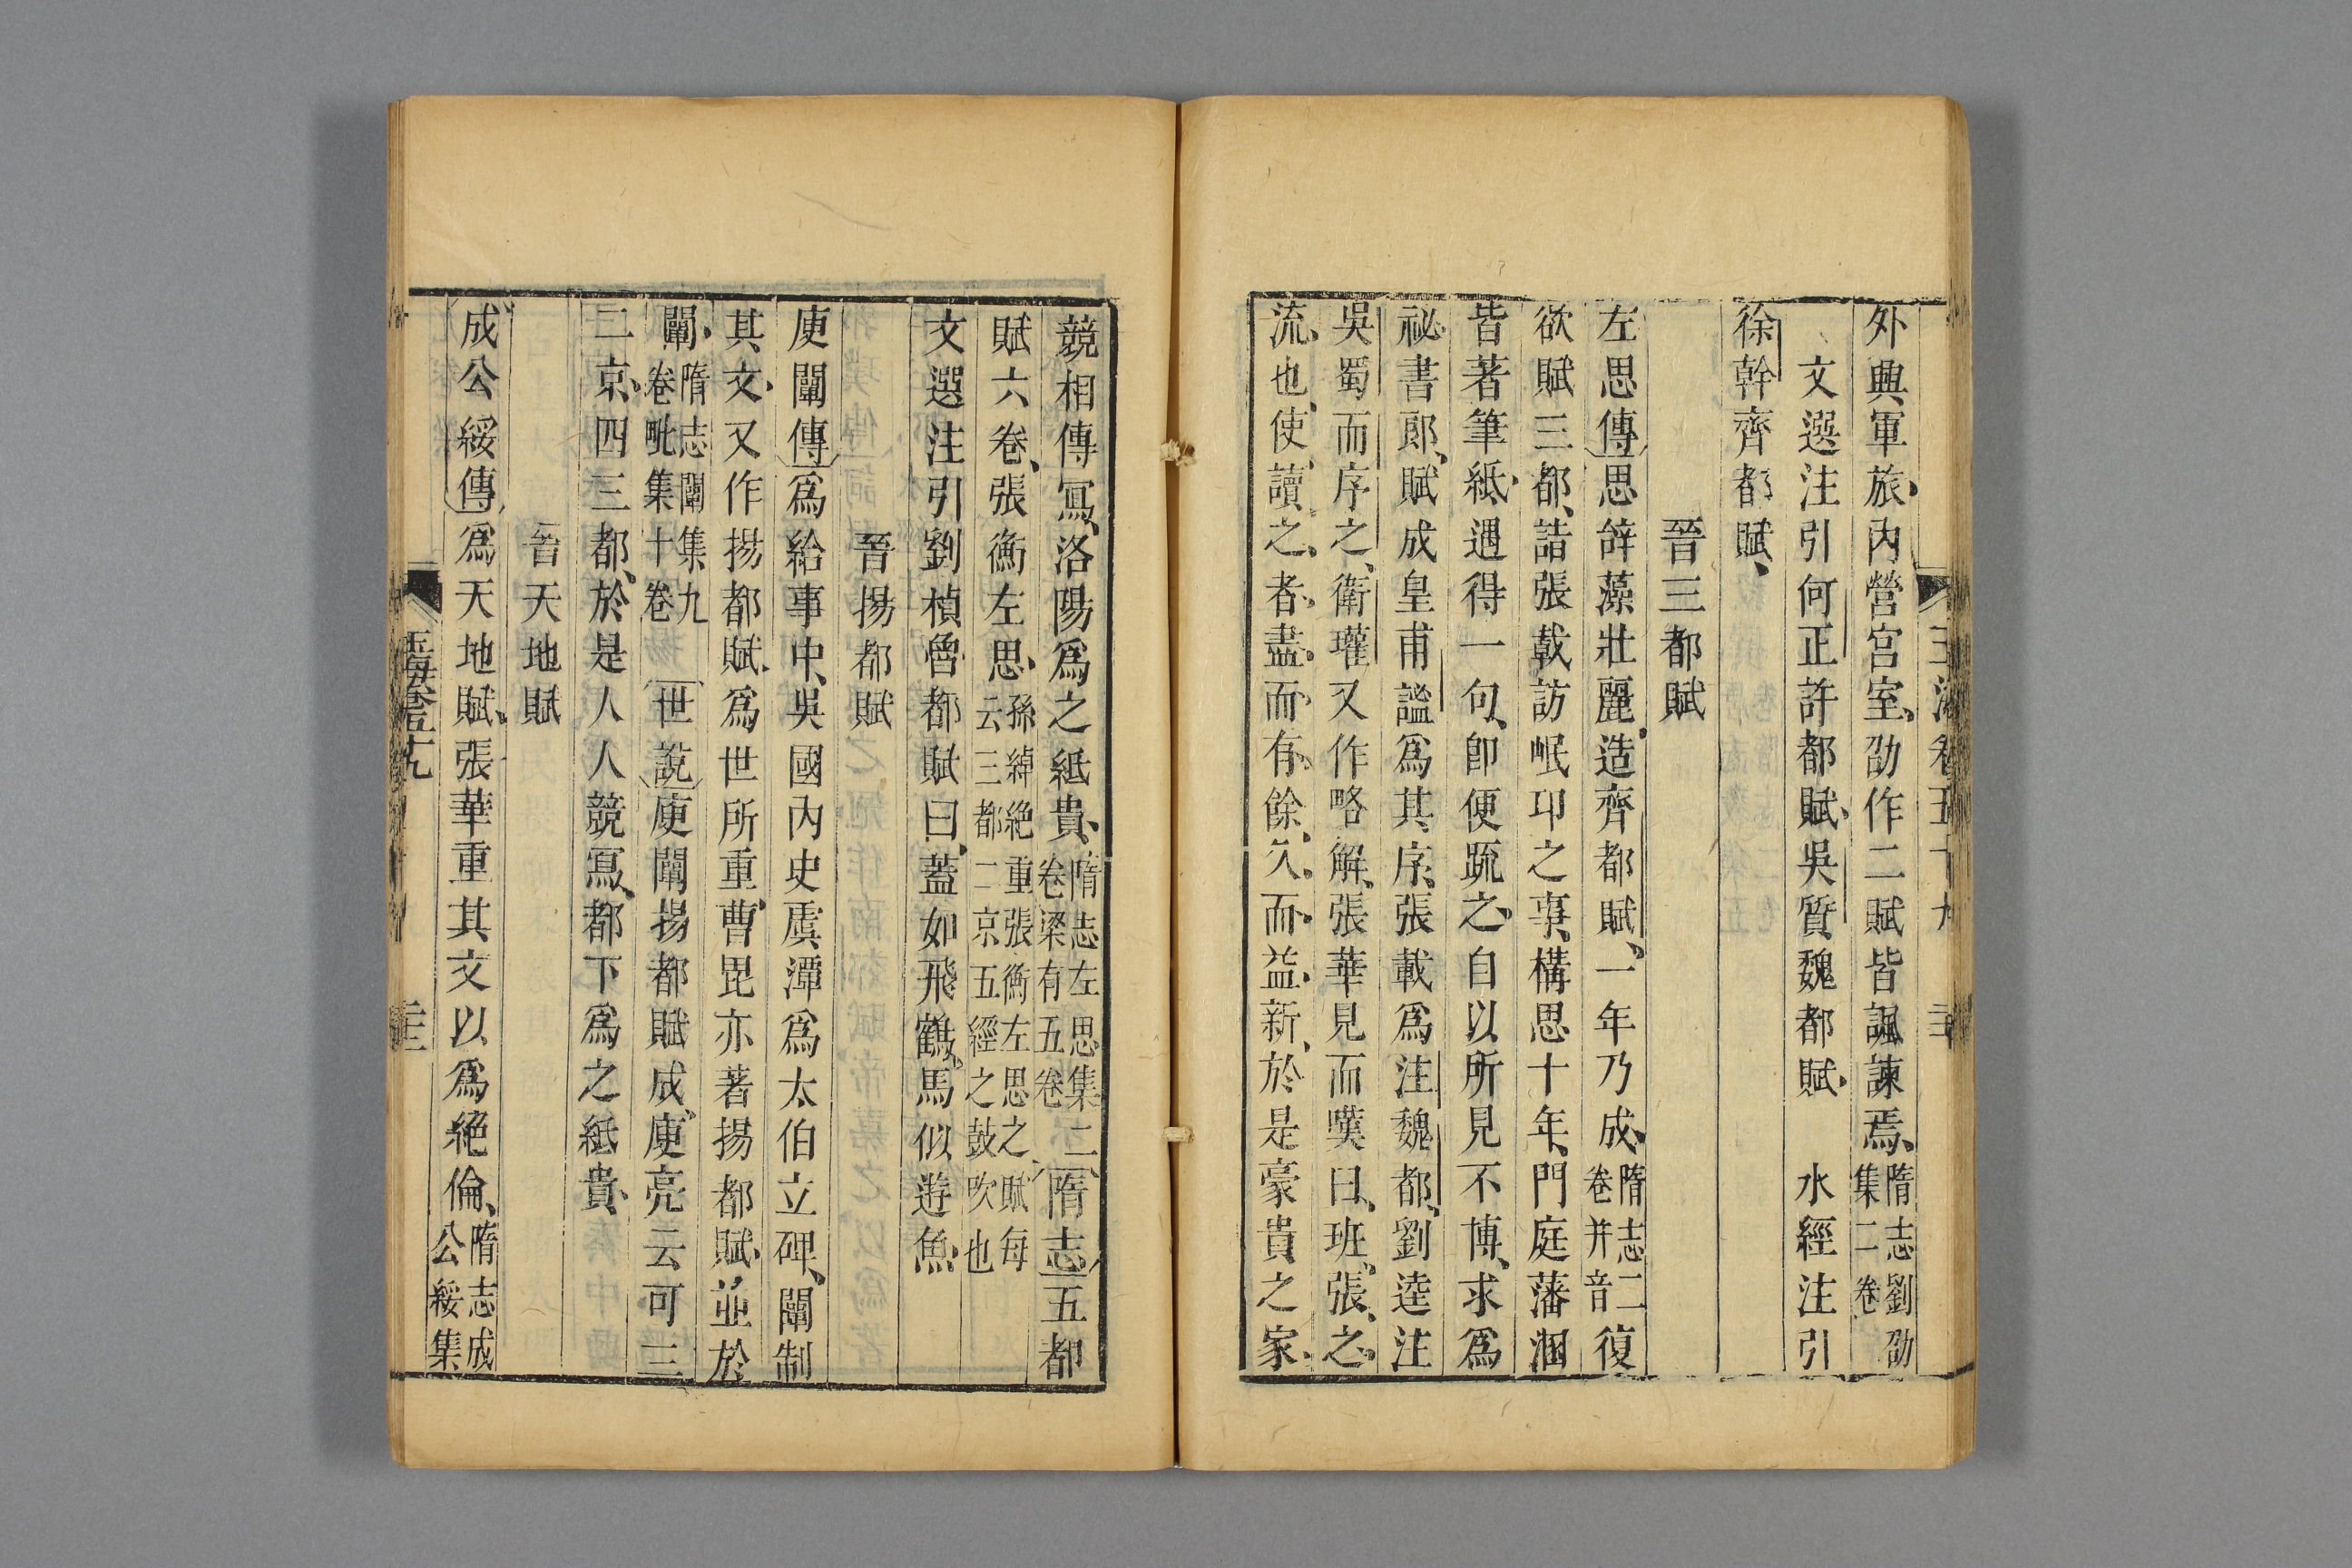 玉海卷五十九
外興軍旅內營宮室劭作二賦皆諷諫焉隋志劉劭集二卷
文選注引何正許都賦吳質魏都賦 水經注引
徐幹齊都賦
晉三都賦
左思傳思辭藻壯麗造齊都賦一年乃成隋志二卷并音復
欲賦三都詣張載訪岷卭之事構思十年門庭藩溷
皆著筆紙遇得一句卽便疏之自以所見不博求爲
祕書郎賦成皇甫謐爲其序張載爲注魏都劉逵注
吳蜀而序之衛瓘又作略解張華見而嘆曰班張之
流也使讀之者盡而有餘久而益新於是豪貴之家
競相傳寫洛陽爲之紙貴隋志左思集二卷梁有五卷隋志五都
賦六卷張衡左思孫綽絶重張衡左思之賦每云三都二京五經之鼓吹也
文選注引劉楨魯都賦曰蓋如飛鶴馬似遊魚
晉揚都賦
庾闡傳爲給事中吳國內史虞潭爲太伯立碑闡制
其文又作揚都賦爲世所重曹毘亦著揚都賦並於
闡隋志闡集九卷毗集十卷世說庾闡揚都賦成庾亮云可三
二京四三都於是人人競寫都下爲之紙貴
晉天地賦
成公綏傳爲天地賦張華重其文以爲絶倫隋志成公綏集